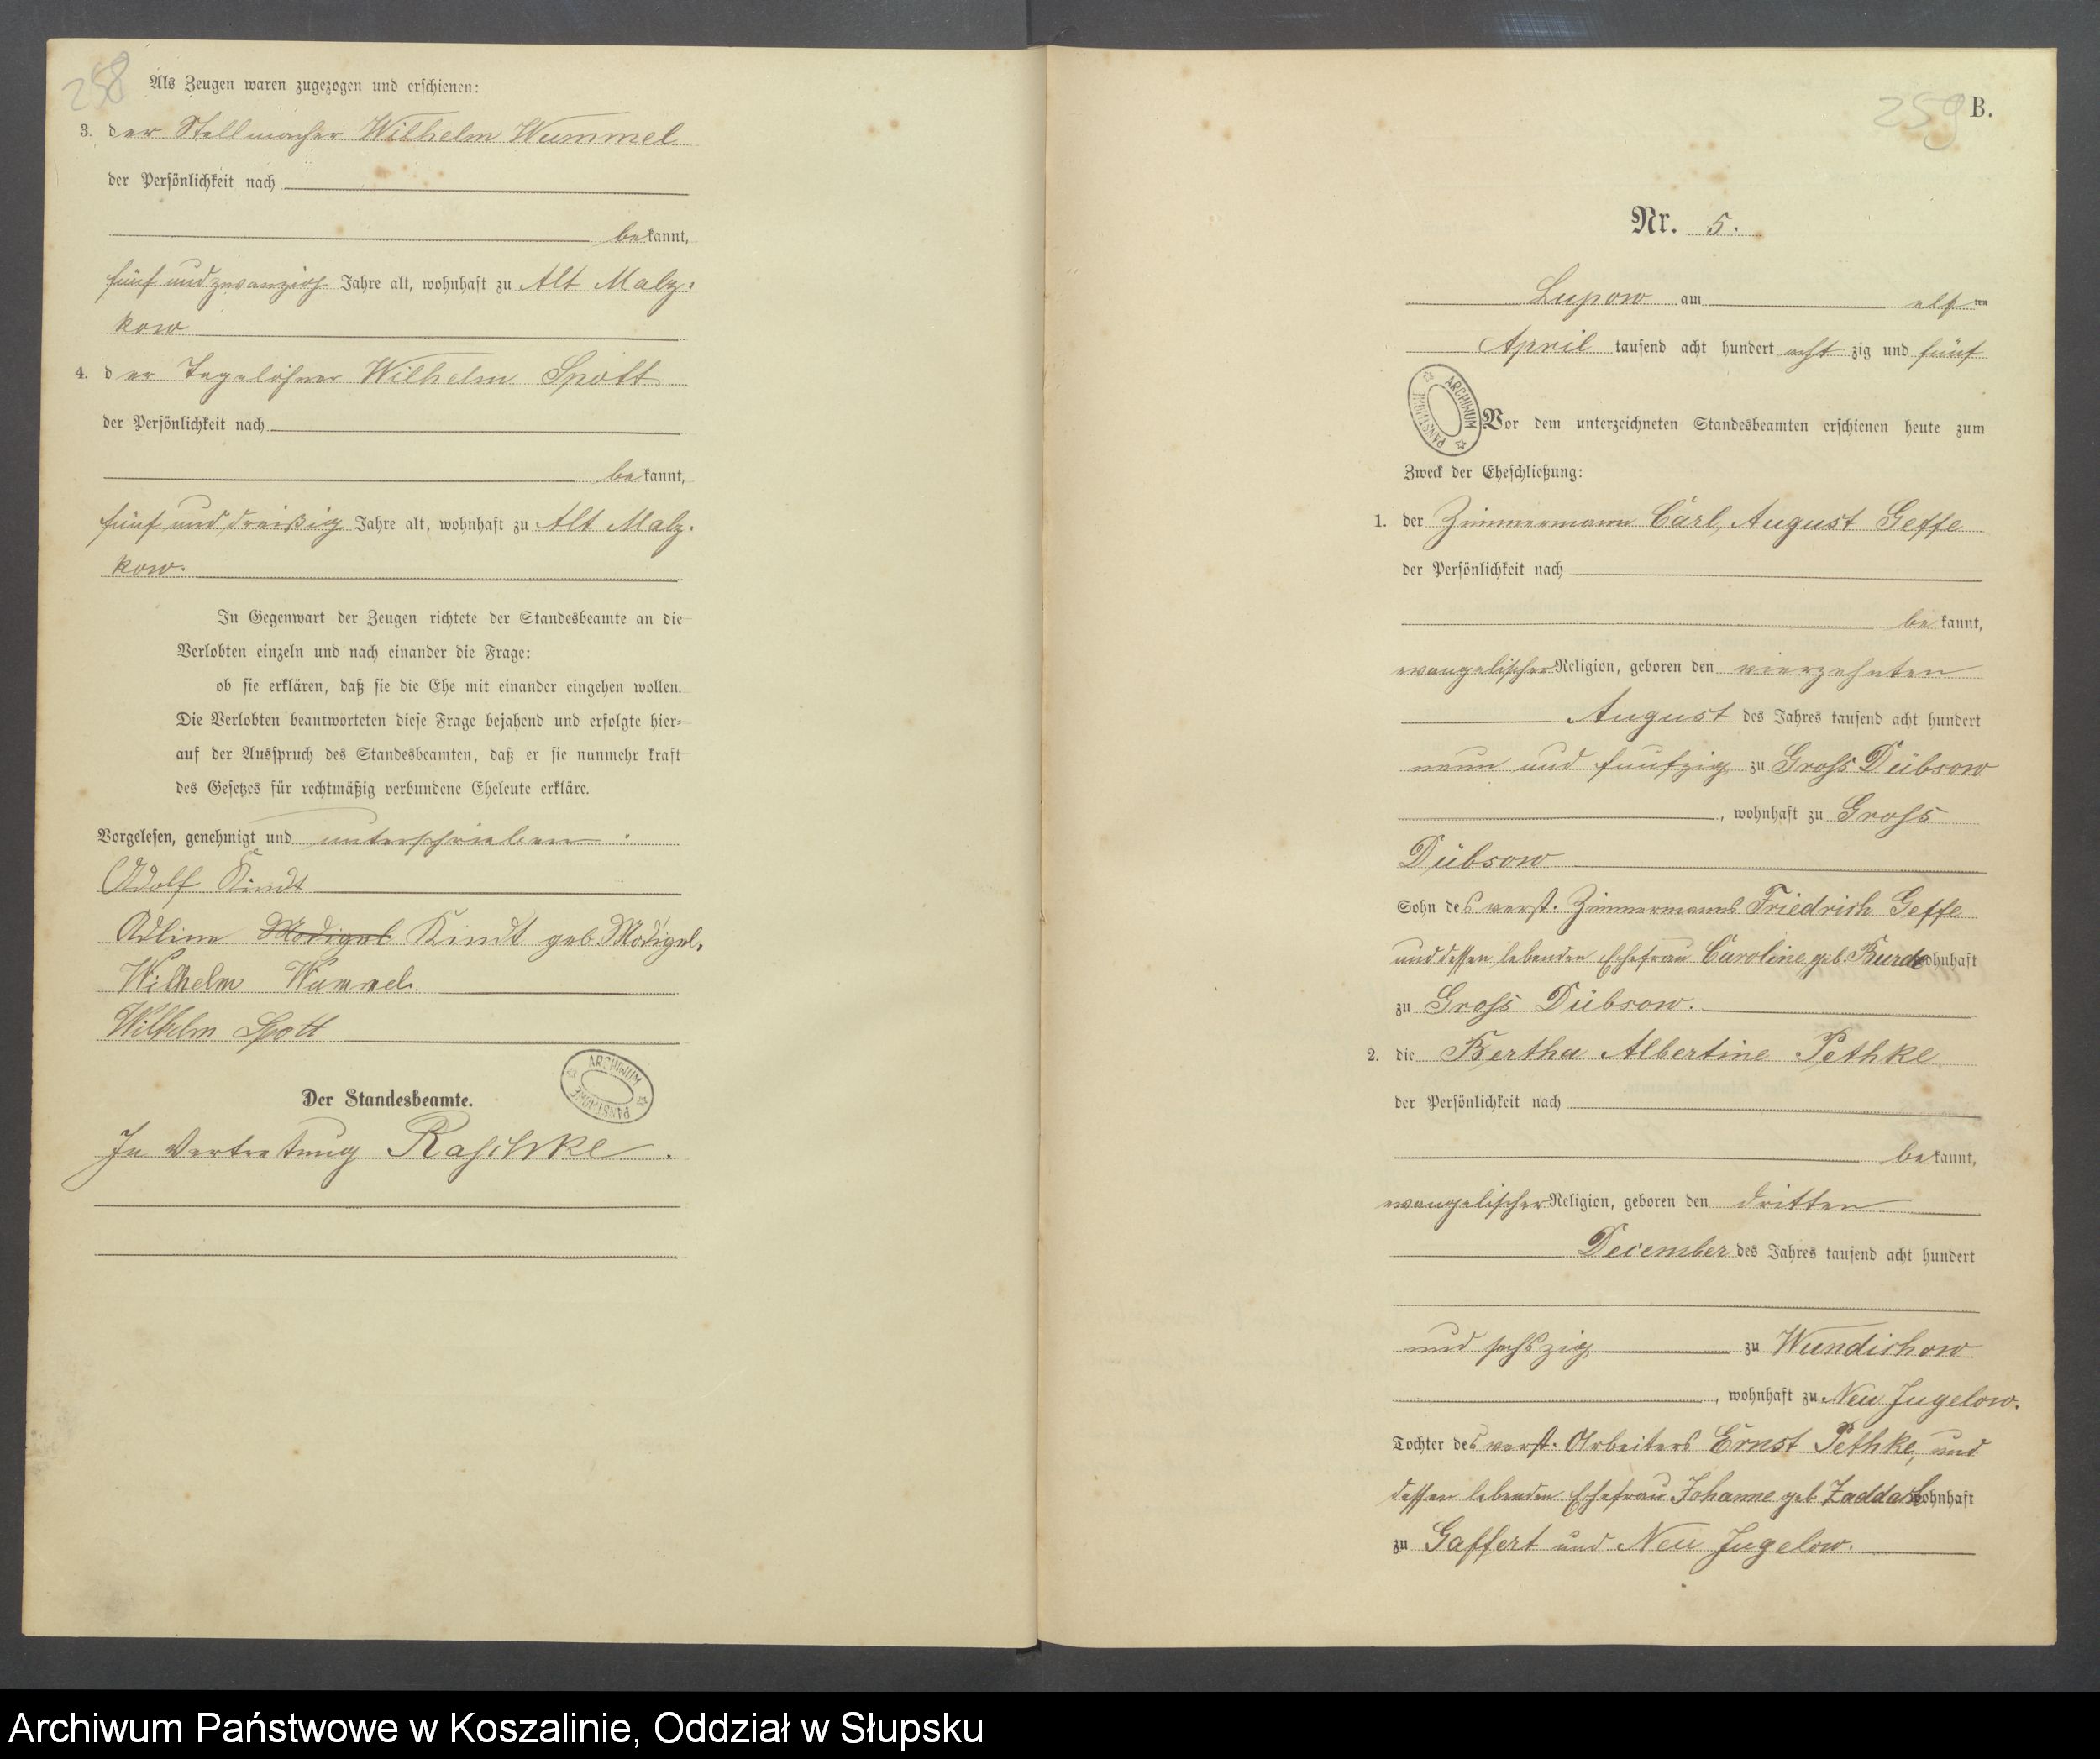 258
Als Zeugen waren zugezogen und erschienen:
3. der Stellmacher Wilhelm Wummel
der Persönlichkeit nach
bekannt,
fünf und zwanzig Jahre alt, wohnhaft zu Alt Malz-
kow
4. der Tagelöhner Wilhelm Spott
der Persönlichkeit nach
bekannt,
fünf und dreißig Jahre alt, wohnhaft zu Alt Malz-
kow.
In Gegenwart der Zeugen richtete der Standesbeamte an die
Verlobten einzeln und nach einander die Frage:
ob sie erklären, daß sie die Ehe mit einander eingehen wollen.
Die Verlobten beantworteten diese Frage bejahend und erfolgte hier-
auf der Ausspruch des Standesbeamten, daß er sie nunmehr kraft
des Gesetzes für rechtmäßig verbundene Eheleute erkläre.
Vorgelesen, genehmigt und unterschrieben.
Adolf Kindt
Adline Modigel Kindt geb. Modigel.
Wilhelm Wummel.
Wilhelm Spott
Der Standesbeamte.
ARCHIWUM PAŃSTWOWE
In Vertretung Raschke.
259 B.
Nr. 5.
Lupow am elf ten
April tausend acht hundert acht zig und fünf
ARCHIWUM PAŃSTWOWE
Vor dem unterzeichneten Standesbeamten erschienen heute zum
Zweck der Eheschließung:
1. der Zimmermann Carl August Geffe
der Persönlichkeit nach
bekannt,
evangelischer Religion, geboren den vierzehnten
August des Jahres tausend acht hundert
neun und funfzig zu Gross Dübsow
, wohnhaft zu Gross
Dübsow
Sohn des verst. Zimmermanns Friedrich Geffe
und dessen lebenden Ehefrau Caroline geb. wohnhaft
zu Gross Dübsow.
2. die Bertha Albertine Pethke
der Persönlichkeit nach
bekannt,
evangelischer Religion, geboren den dritten
December des Jahres tausend acht hundert
und sechszig zu Wundichow
, wohnhaft zu Neu Jugelow.
Tochter des verst. Arbeiters Ernst Pethke, und
dessen lebenden Ehefrau Johanne geb. Zaddach wohnhaft
zu Gaffert und Neu Jugelow.
Archiwum Państwowe w Koszalinie, Oddział w Słupsku